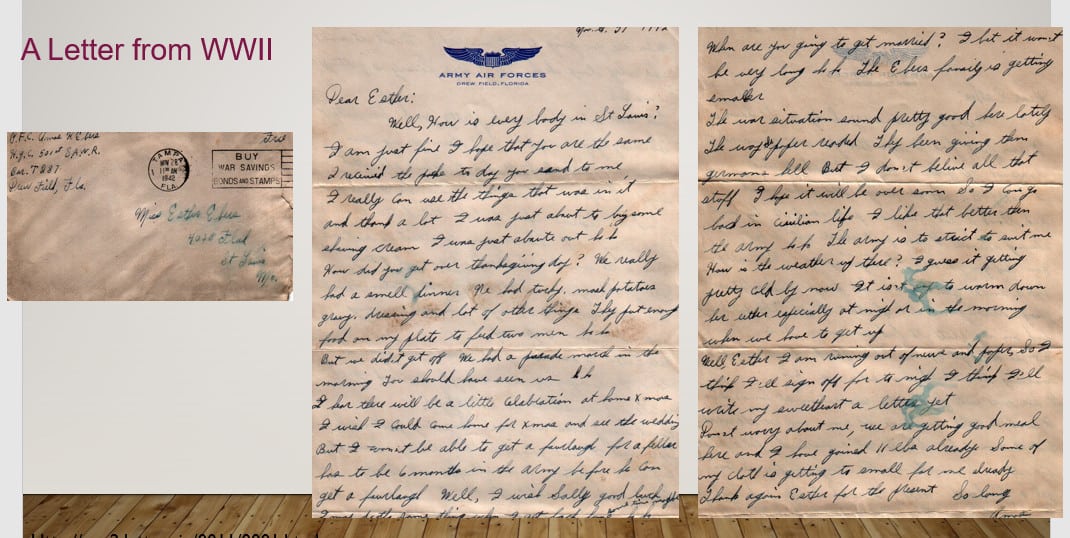 A Letter from WWII
P.F.C. Amos H Ebers
Free
501st S.A.W.R.
Bar. T 227
Drew Field, Fla.
TAMPA
11 30 AM
1942
FLA.
BUY
WAR SAVINGS
BONDS AND STAMPS
Miss Esther Ebers
St Louis
Mo.
ARMY AIR FORCES
DREW FIELD, FLORIDA
Dear Esther:
Well, How is every body in St Louis?
I am just fine I hope that you are the same
I received the to day you send to me
I really can use the things that was in it
and thank a lot I was just about to buy some
shaving cream I was just out h h
How did you get over thanksgiving day? We really
had a smell dinner We had mash potatoes
gravy, dressing and lot of other things They put enough
food on my plate to feed two men h h
But we didn't get off We had a parade march in the
morning You should have seen us h h
I hear there will be a little at home Xmas
I wish I could come home for Xmas and see the wedding
But I wount be able to get a furlough for a feller
has to be 6 months in the army before he can
get a furlough Well, I wish Sally good luck
When are you going to get married? I bet it won't
be very long h h The Ebers family is getting
smaller
The war situation sound pretty good here lately
The way paper readed They been giving them
germans hell But I don't belive all that
stuff I hope it will be over soon So I can go
back in civilian life I like that better then
the army h h The army is to strict to suit me
How is the weather up there? I guess it getting
pretty cold by now It to warm down
her either especially at nigh or in the morning
when we have to get up
Well, Esther I am runing out of news and paper, So I
think I'll sign off for to nigh I think I'll
write my sweetheart a letter yet
Dount worry about me, we are getting good meal
here and I have gained 11 lbs already Some of
my cloth is getting to small for me
Thank again Esther for the present So long
Amos